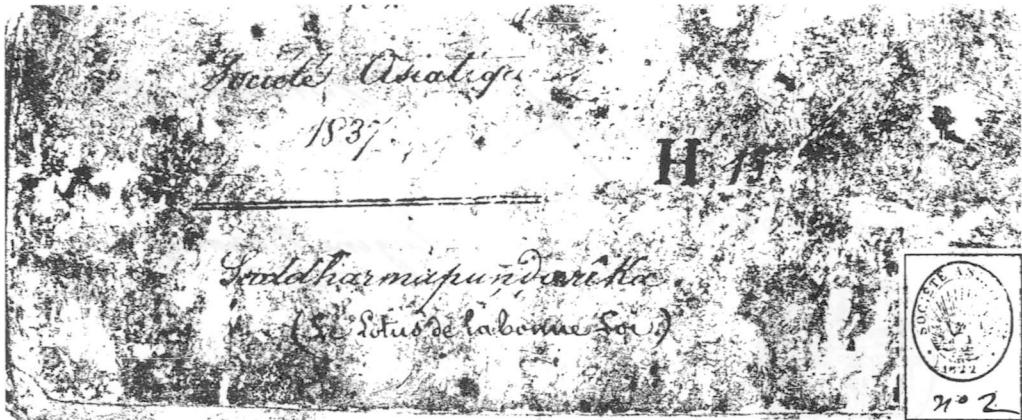 Société Asiatique
1837
H 15
Saddharmapuṇḍarîka
(Le Lotus de la bonne Loi.)
SOCIÉTÉ AS
1822
nº 2